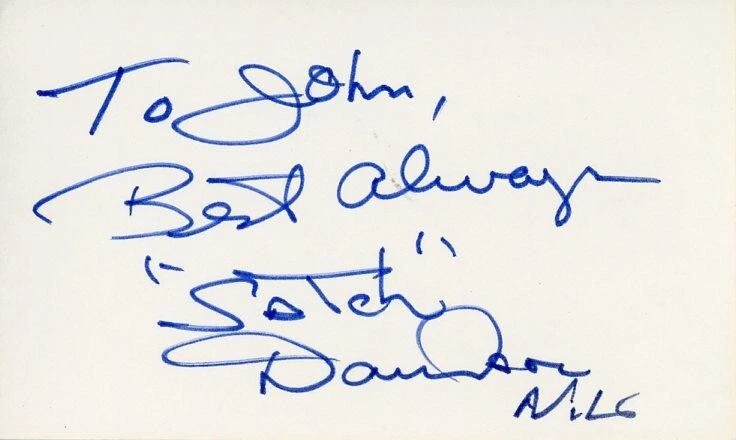 To John,
Best Always
"Satch"
Davidson
N.L.